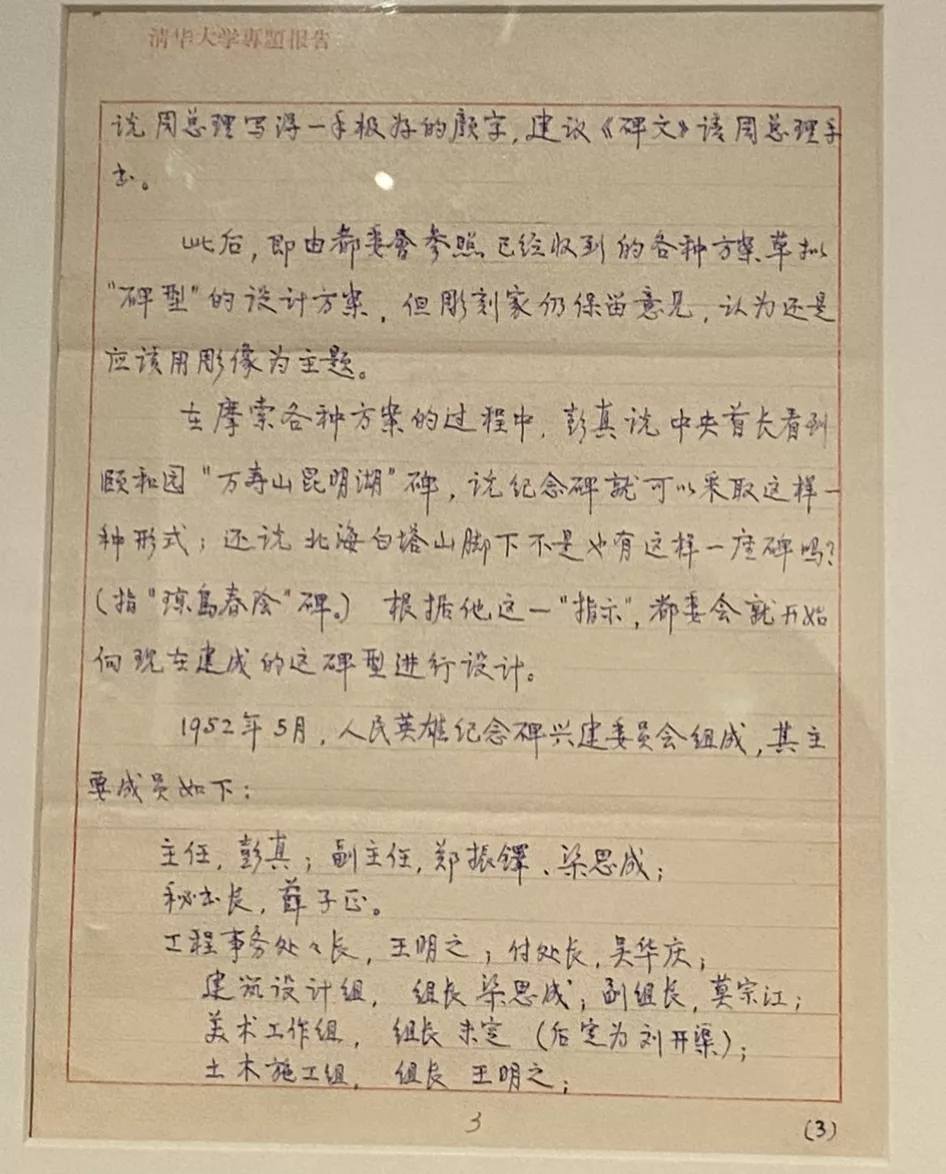 清华大学專題报告
说周总理写得一手极好的颜字，建议《碑文》请周总理手
书。
此后，即由都委會参照已经收到的各种方案草拟
“碑型”的设计方案，但彫刻家仍保留意见，认为还是
应该用彫像为主题。
在摩索各种方案的过程中，彭真说中央首长看到
颐和园“万寿山昆明湖”碑，说纪念碑就可以采取这样一
种形式；还说北海白塔山脚下不是也有这样一座碑吗？
（指“琼岛春陰”碑。）根据他这一“指示”，都委会就开始
向现在建成的这碑型进行设计。
1952年5月，人民英雄纪念碑兴建委员会组成，其主
要成员如下：
主任，彭真；副主任，郑振鐸、梁思成；
秘书长，薛子正。
工程事务处々长，王明之；付处长，吴华庆；
建筑设计组，组长梁思成；副组长，莫宗江；
美术工作组，组长未定（后定为刘开渠）；
土木施工组，组长王明之；
3
(3)